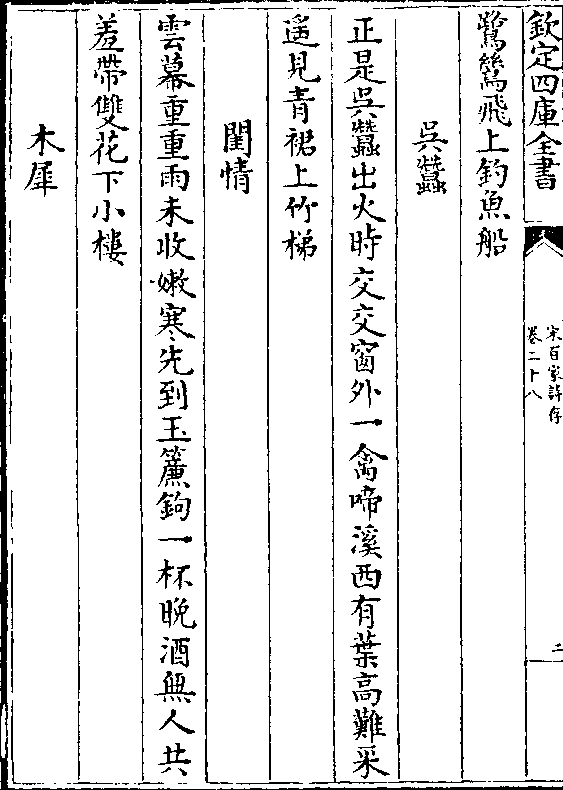 欽定四庫全書
宋百家詩存
卷二十八
二
鷺鷥飛上釣魚船
吳蠶
正是吳蠶出火時交交窗外一禽啼溪西有葉高難采
遥見青裙上竹梯
閨情
雲幕重重雨未收嫩寒先到玉簾鉤一杯晚酒無人共
羞帶雙花下小樓
木犀